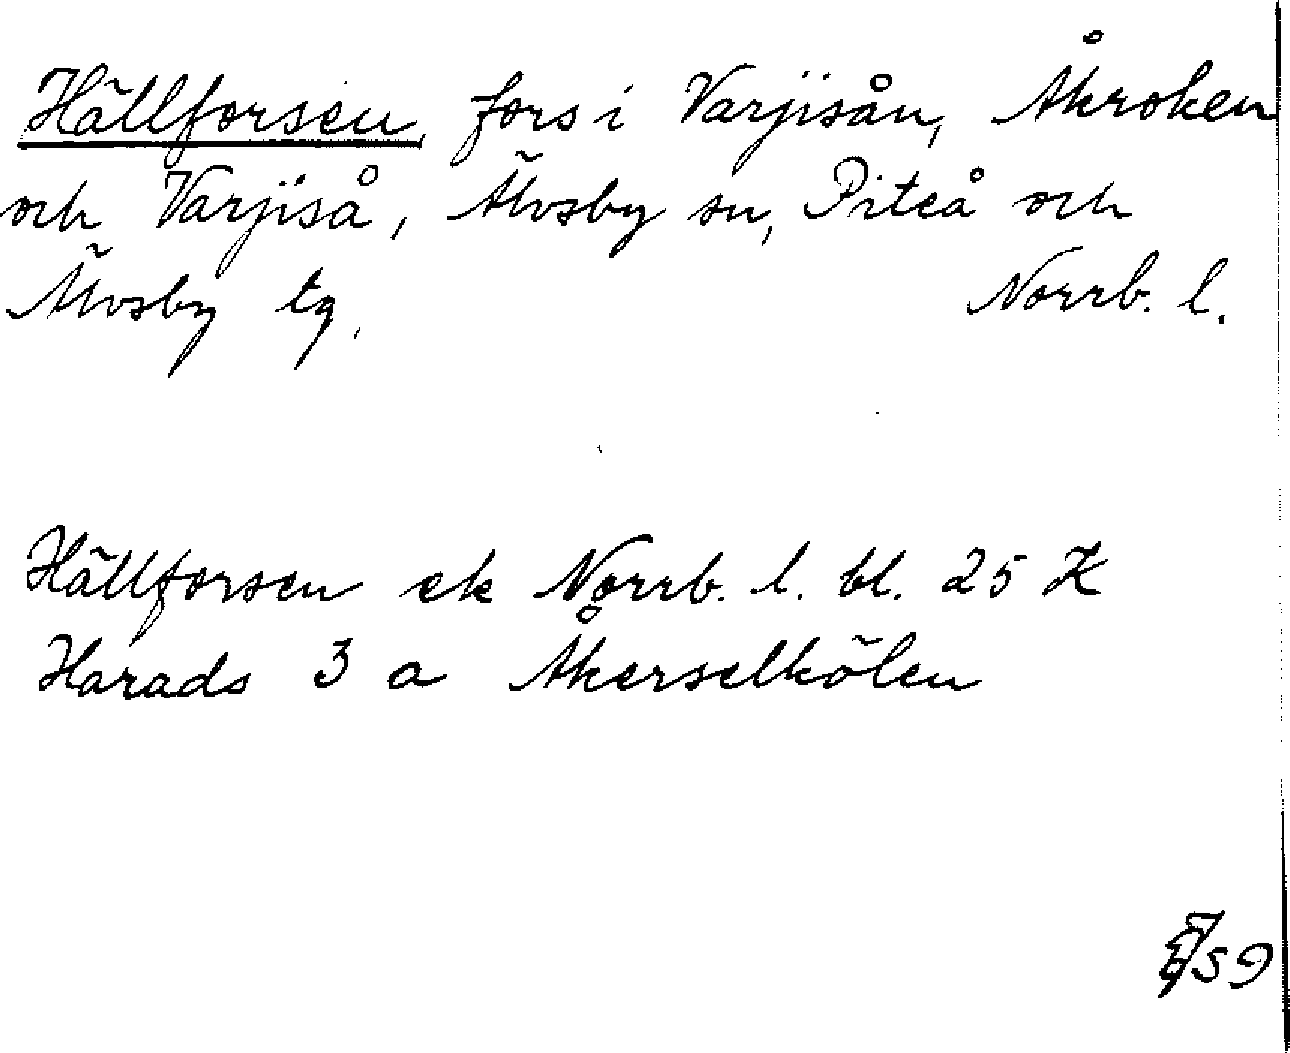 Hällforsen, fors i Varjisån, Åkroken
och Varjiså, Älvsby sn, Piteå och
Älvsby tg. Norrb. l.
Hällforsen ek Norrb. l. bl. 25 K
Harads 3 a Åkerselkölen
59